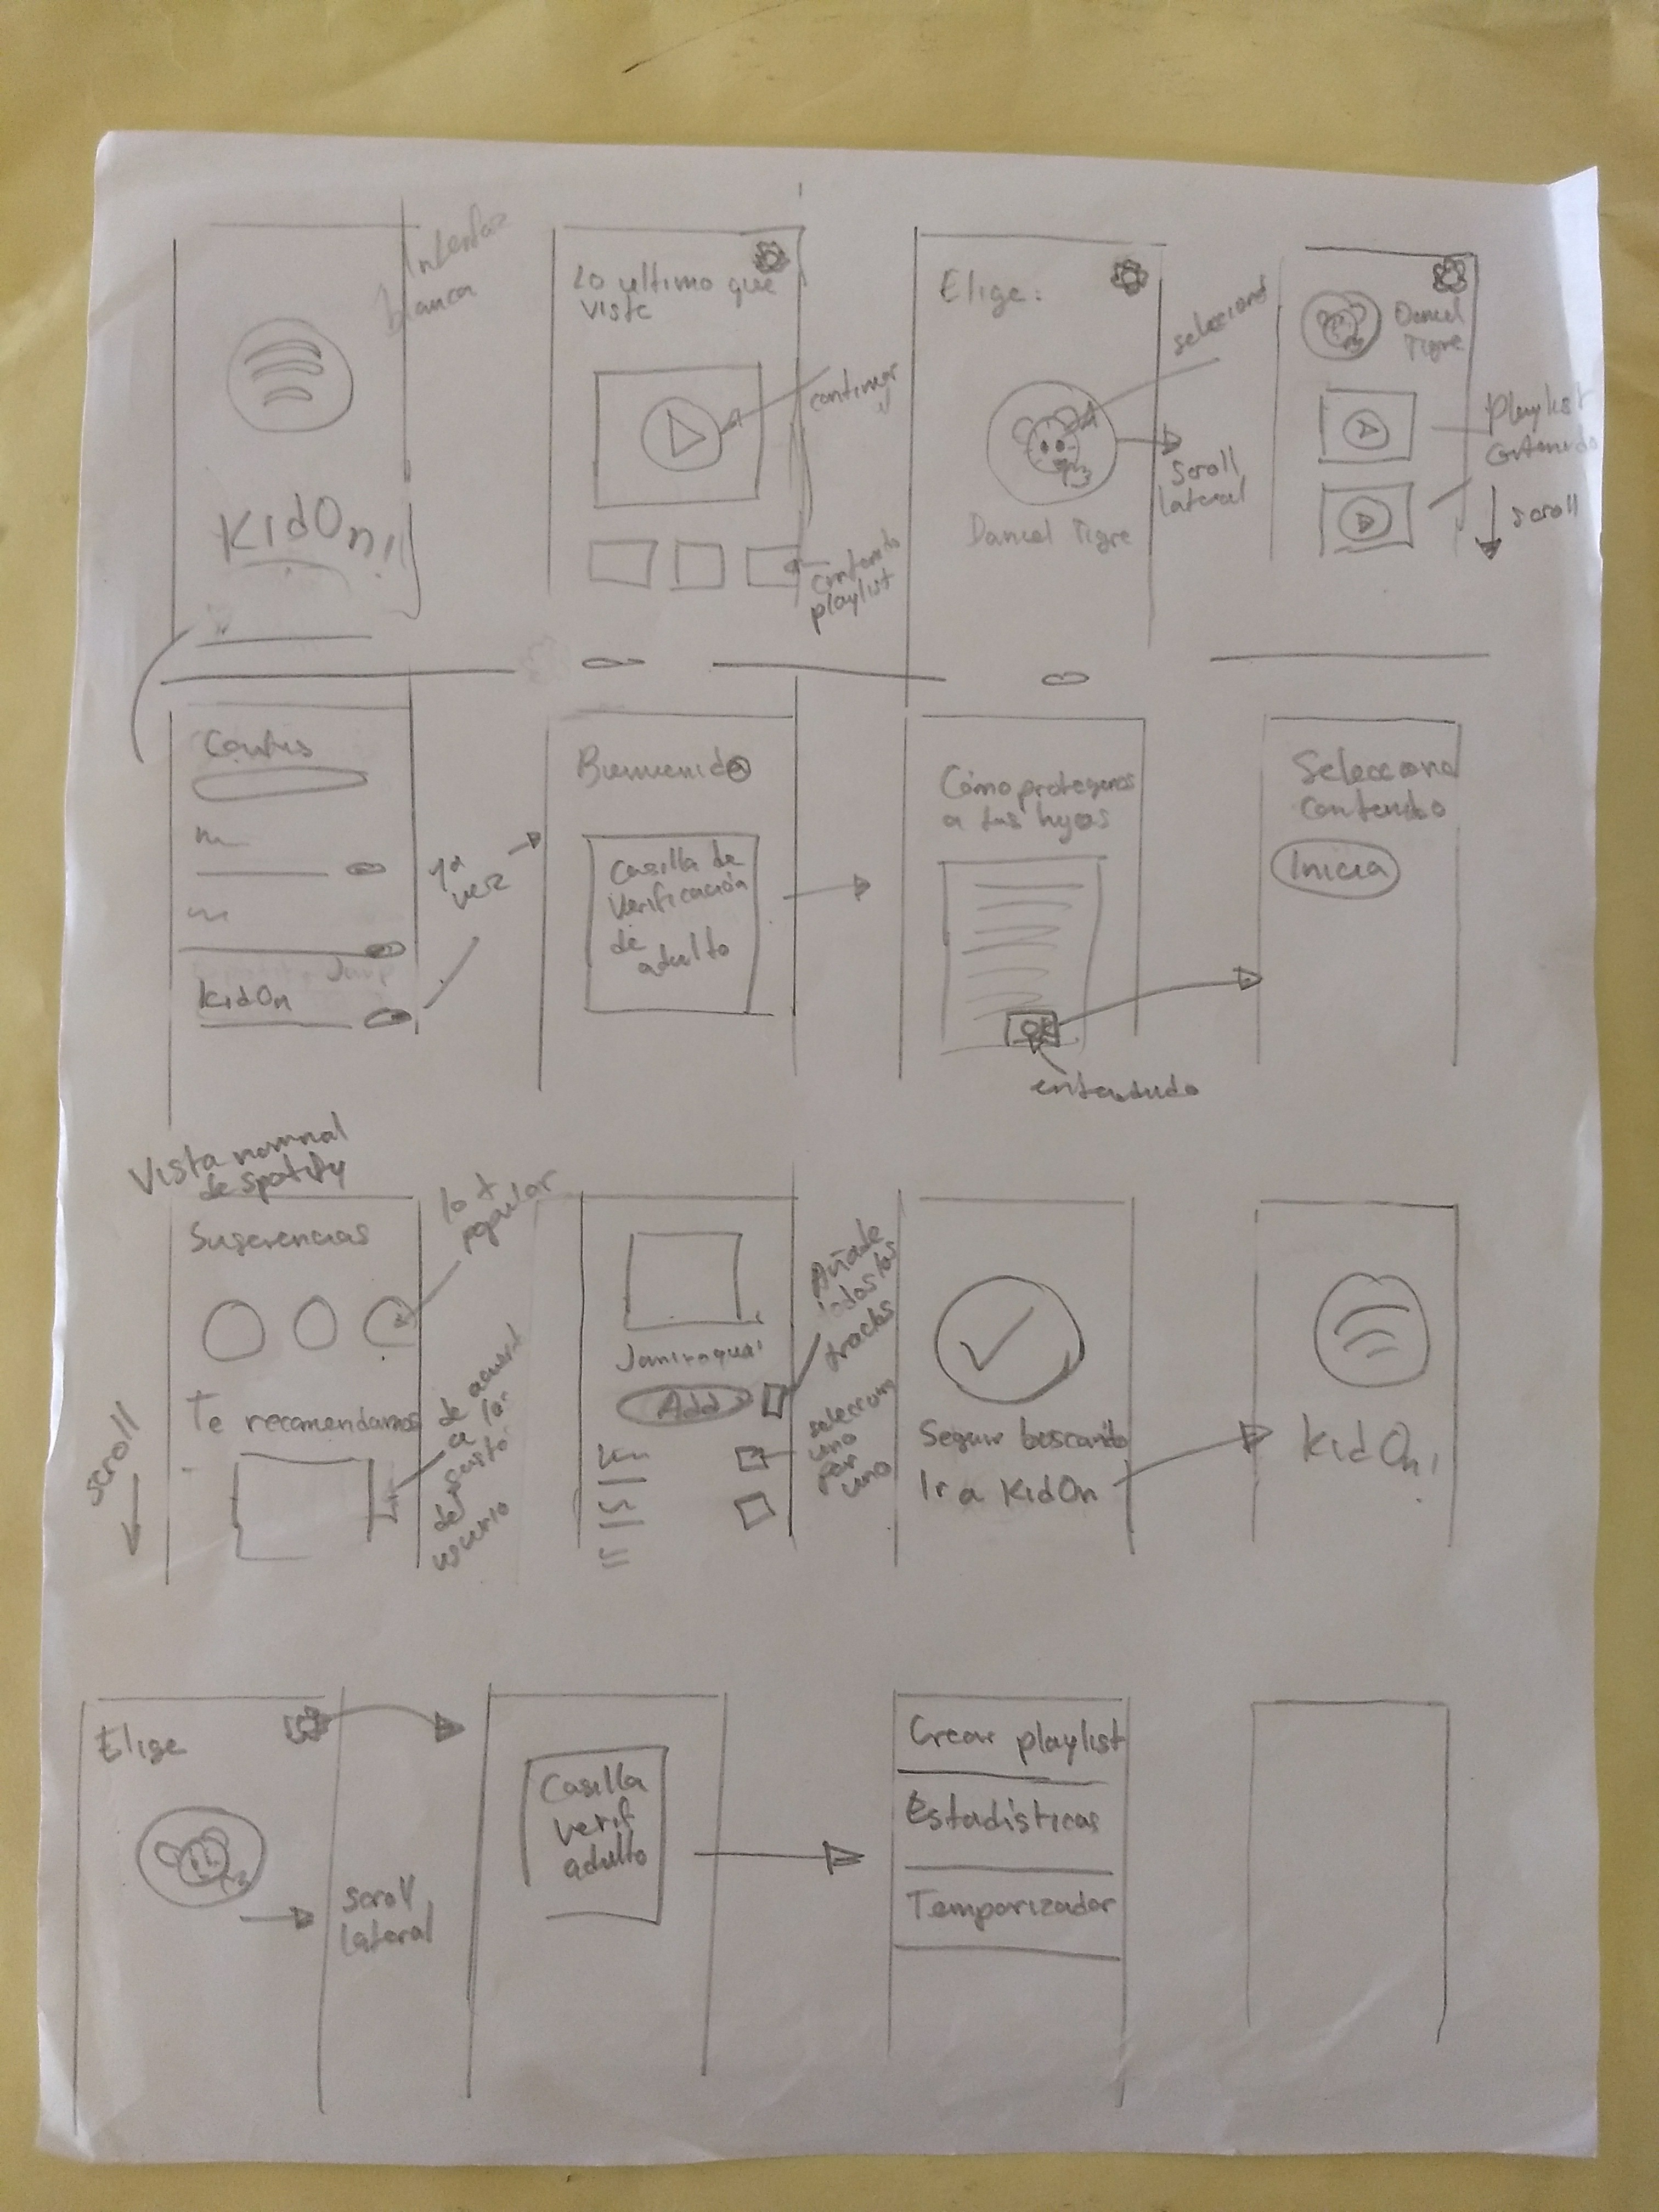 Interfaz
blanca
KidOn!
Lo ultimo que
viste
continuar
contenido
playlist
Elige:
selecciona
scroll
lateral
Daniel Tigre
Daniel
Tigre
Playlist
contenido
scroll
Config
KidOn
1a
vez
Bienvenid@
Casilla de
verificación
de
adulto
Cómo protegemos
a tus hij@s
OK
entendido
Selecciona
contenido
Inicia
Vista normal
de spotify
Sugerencias
lo +
popular
Te recomendamos
scroll
de acuerdo
a
gusto
del
usuario
Jamiroquai
Add
Añade
todos los
tracks
selecciona
uno
por
uno
Seguir buscando
Ir a KidOn
KidOn!
Elige
scroll
lateral
Casilla
verif
adulto
Crear playlist
Estadísticas
Temporizador